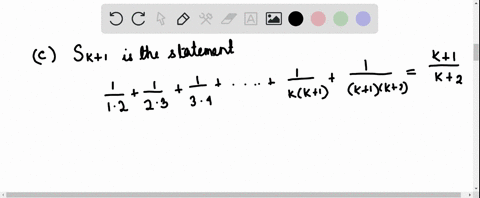 (c) Sₖ₊₁ is the statement
1/(1·2) + 1/(2·3) + 1/(3·4) + ..... + 1/(k(k+1)) + 1/((k+1)(k+2)) = (k+1)/(k+2)